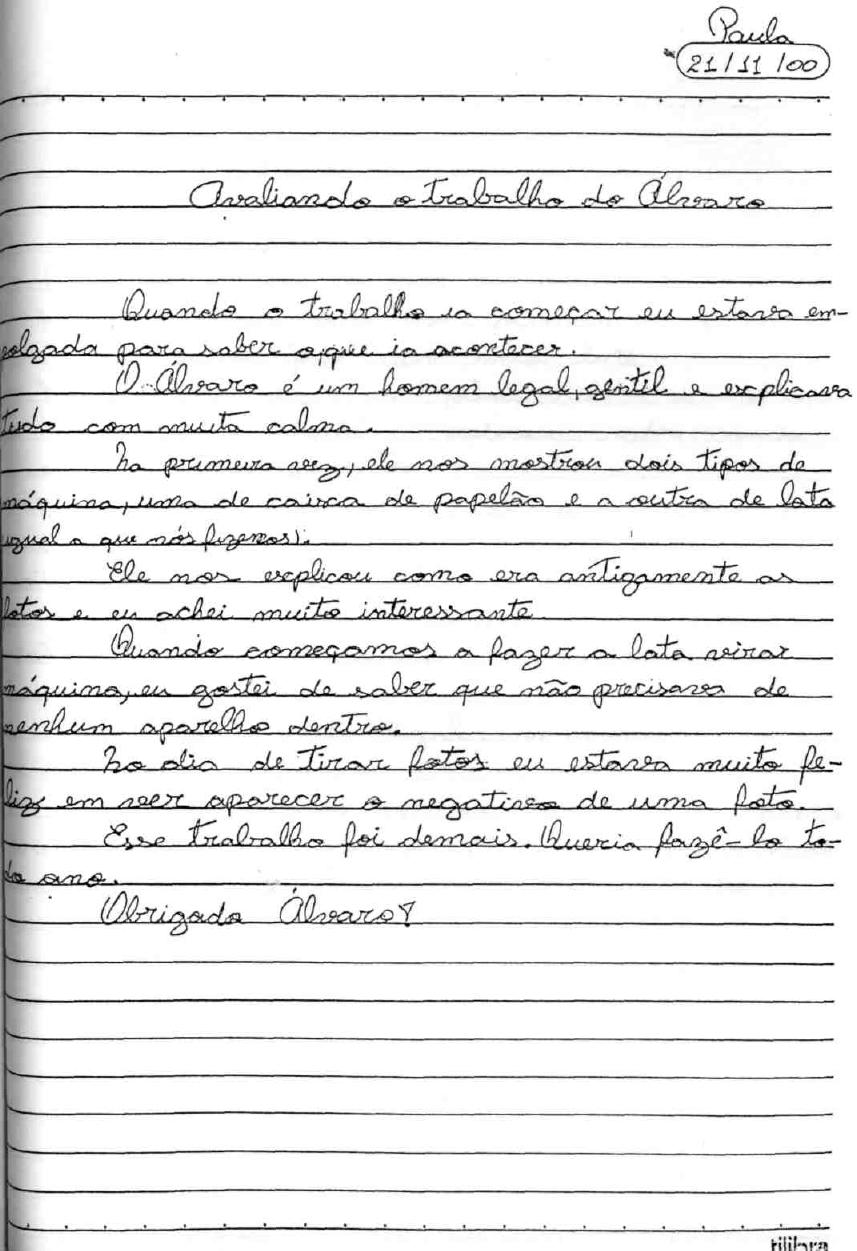 Paula
21/11/00
Avaliando o trabalho do Álvaro
Quando o trabalho ia começar eu estava em-
polgada para saber o que ia acontecer.
O Álvaro é um homem legal, gentil e explicava
tudo com muita calma.
Na primeira vez, ele nos mostrou dois tipos de
máquina, uma de caixa de papelão e a outra de lata
igual a que nós fizemos).
Ele nos explicou como era antigamente as
fotos e eu achei muito interessante
Quando começamos a fazer a lata virar
máquina, eu gostei de saber que não precisava de
nenhum aparelho dentro.
No dia de tirar fotos eu estava muito fe-
liz em ver aparecer o negativo de uma foto.
Esse trabalho foi demais. Queria fazê-lo to-
do ano.
Obrigada Álvaro!
tilibra